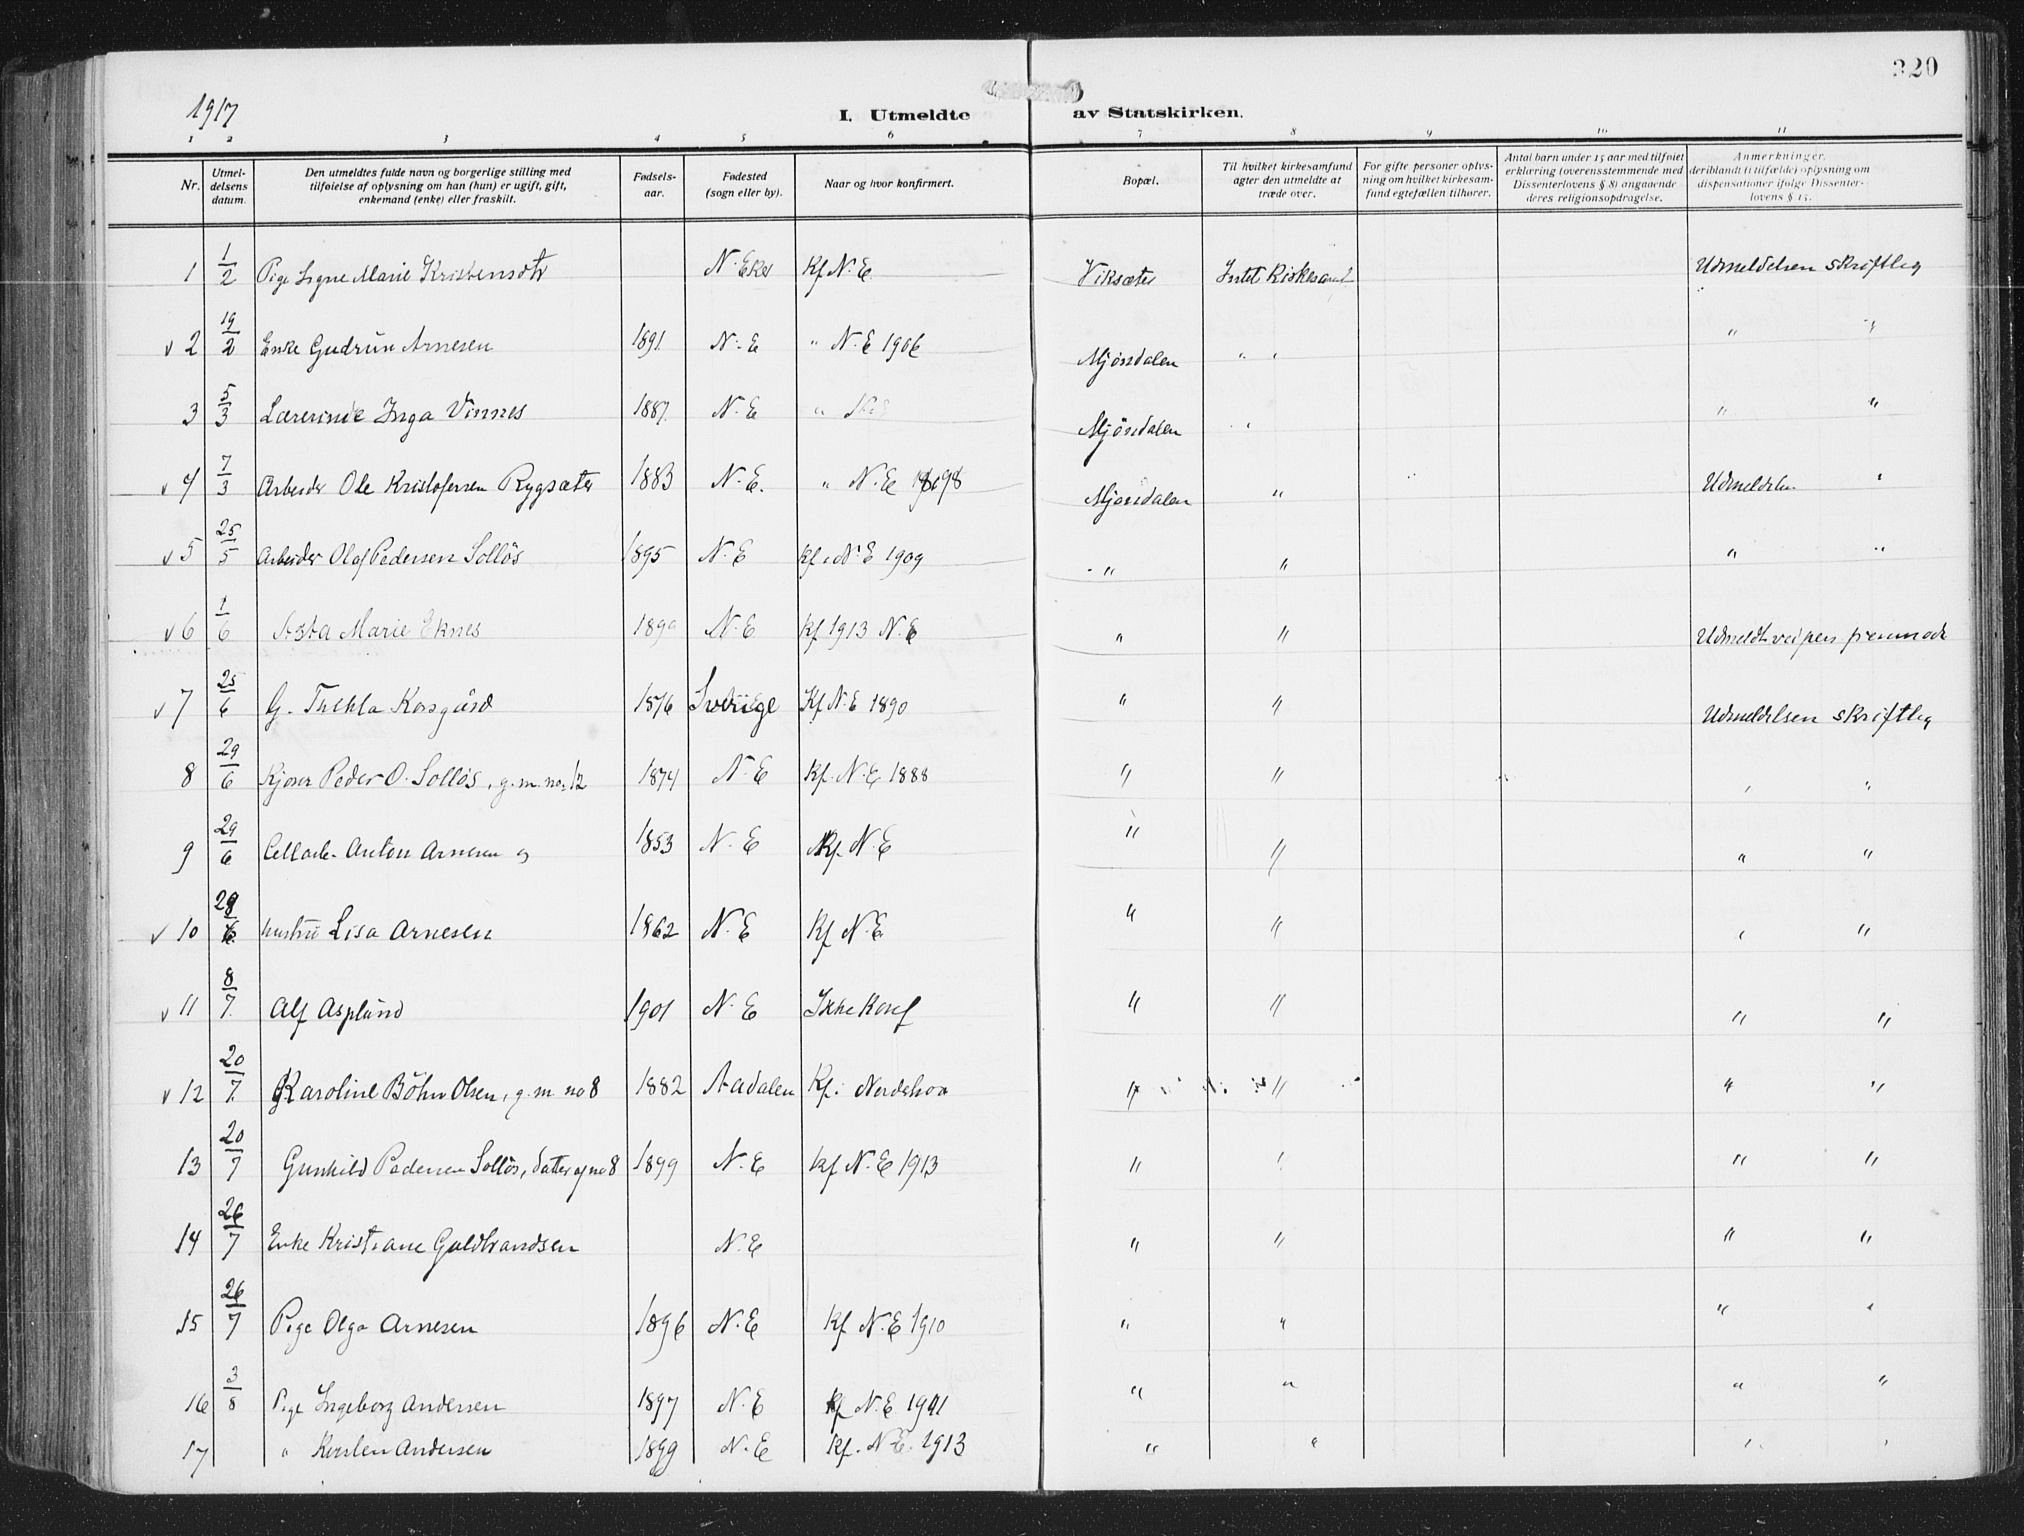 320
1917
I. Utmeldte av Statskirken.
1 2 3 4 5 6 7 8 9 10 11
Nr. | Utmel-delsens datum. | Den utmeldtes fulde navn og borgerlige stilling med tilføielse af oplysning om han (hun) er ugift, gift, enkemand (enke) eller fraskilt. | Fødsels-aar. | Fødested (sogn eller by). | Naar og hvor konfirmert. | Bopæl. | Til hvilket kirkesamfund agter den utmeldte at træde over. | For gifte personer oplys-ning om hvilket kirkesam-fund egtefællen tilhører. | Antal barn under 15 aar med tilføiet erklæring (overensstemmende med Dissenterlovens § 8) angaaende deres religionsopdragelse. | Anmerkninger, deriblandt (i tilfælde) oplysning om dispensationer ifølge Dissenter-lovens § 15.
1 1/2 Pige Signe Marie Kristensdtr N. Eker Kf N. E. Viksæter Intet Kirkesamf Udmeldelsen skriftleg
v 2 19/2 Enke Gudrun Arnesen 1891. N. E " N. E 1906 Mjøndalen " " " "
3 5/3 Lærerinde Inga Vinnes 1887. N. E " N. E Mjøndalen " " "
v 4 7/3 Arbeider Ole Kristofersen Rygsæter 1883 N. E. " N. E 1898 Mjøndalen " Udmeldelsen "
v 5 25/5 Arbeider Olaf Pedersen Solløs 1895 N. E Kf. N. E 1909 " " " "
v 6 1/6 Asta Marie Eknes 1899 N. E Kf 1913 N. E " " Udmeldt ved pers fremmøde
v 7 25/6 G. Thekla Korsgård 1876 Sverige Kf N. E 1890 " " Udmeldelsen skriftleg
8 29/6 Kjører Peder O. Solløs, g. m. no 12 1874 N. E Kf. N. E 1888 " " " "
9 29/6 Anton Arnesen og 1853 N. E Kf N. E " " " "
v 10 29/6 hustru Lisa Arnesen 1862 N. E Kf N. E " " " "
v 11 8/7 Alf Asplund 1901 N. E Ikke Konf " " " "
v 12 20/7 Karoline Böhn Olsen, g. m no 8 1882 Aadalen Kf. Norderhov " " " "
13 20/7 Gunhild Pedersen Solløs, datter af no 8 1899 N. E Kf N. E 1913 " " " "
14 26/7 Enke Kristiane Guldbrandsen N. E " " " "
15 26/7 Pige Olga Arnesen 1896 N. E Kf N. E 1910 " " " "
16 3/8 Pige Ingeborg Andersen 1897 N. E Kf N. E 1911 " " " "
17 " Andersen 1899 N. E Kf. N. E. 1913 " " " "